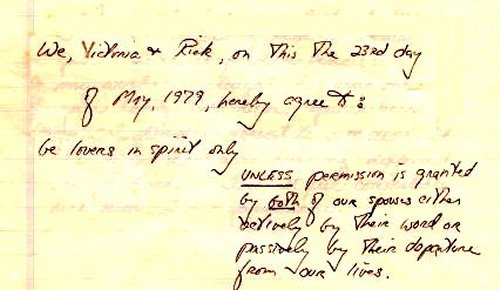 We, Victoria & Rick, on this the 23rd day
of May, 1979, hereby agree to:
be lovers in spirit only
UNLESS permission is granted
by both of our spouses either
actively by their word or
passively by their departure
from our lives.